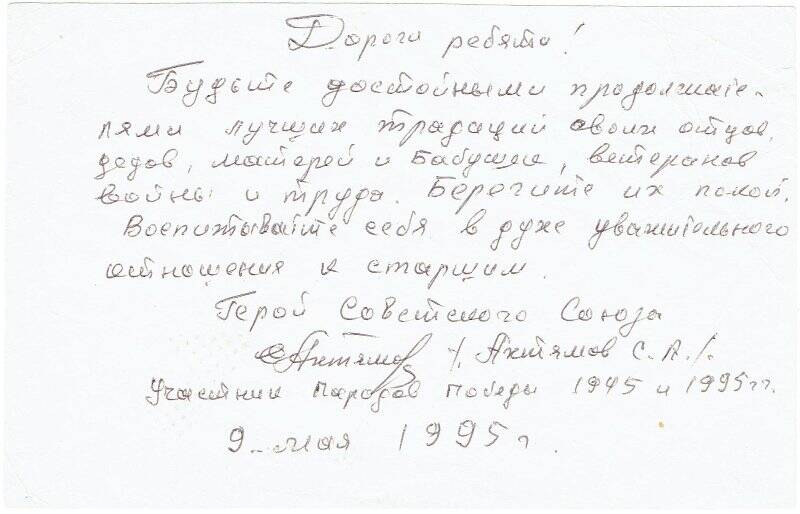 Дороги ребята!
Будьте достойными продолжате-
лями лучших традаций своих отцов,
дедов, матерей и бабушек, ветеранов
войны и труда. Берегите их покой.
Воспитывайте себя в духе уважительного
отношения к старшим.
Герой Советского Союза
САхтямов /Ахтямов С.А./.
Участник Парадов Победы 1945 и 1995гг.
9 мая 1995г.